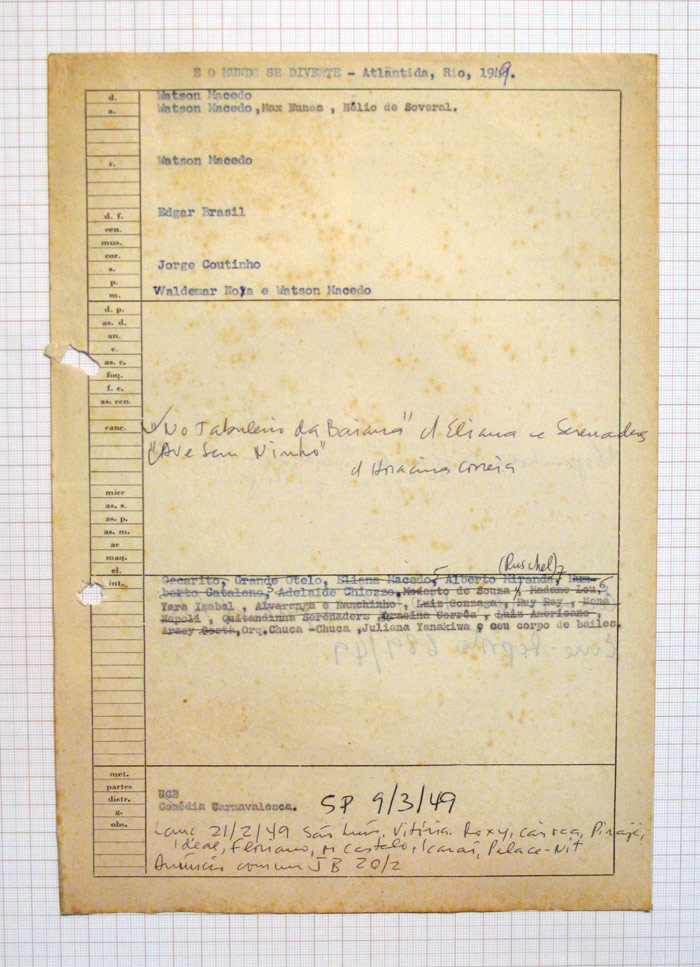 E O MUNDO SE DIVERTE - Atlântida, Rio, 1949.
d. Watson Macedo
a. Watson Macedo,Max Nunes , Hélio de Soveral.
r. Watson Macedo
d. f. Edgar Brasil
cen.
mus.
cor.
s. Jorge Coutinho
p.
m. Waldemar Noya e Watson Macedo
d. p.
as. d.
an.
c.
as. c.
foq.
f. c.
as. cen.
canc. "No Tabuleiro da Baiana" c/ Eliana e Serenaders
"Ave Sem Ninho"
c/ Horacina Correia
micr
as. s.
as. p.
as. m.
ae
maq.
el.
(Ruschel) 7
int. Oscarito, Grande Otelo, Eliana Macedo, 5 Alberto Miranda, Hum-
berto Catalano, Adelaide Chiozzo, Modesto de Souza, Madame Lou, 6
Yara Isabel , Alvarenga e Ranchinho, Luiz Gonzaga, Ruy Rey, René
Napoli , Quitandinha Serenaders, Oracina Corrêa , Luiz Americano,
Aracy Costa, Orq. Chuca -Chuca ,Juliana Yanakiwa e seu corpo de bailes.
Cine-Repórter 689/49
met.
partes
distr. UCB
g. Comédia Carnavalesca. SP 9/3/49
obs. Lanc 21/2/49 São Luís, Vitória. Roxy, Carioca, Pirajá,
Ideal, Floriano, M Castelo, Icaraí, Palace-Nit
Anúncio comum JB 20/2